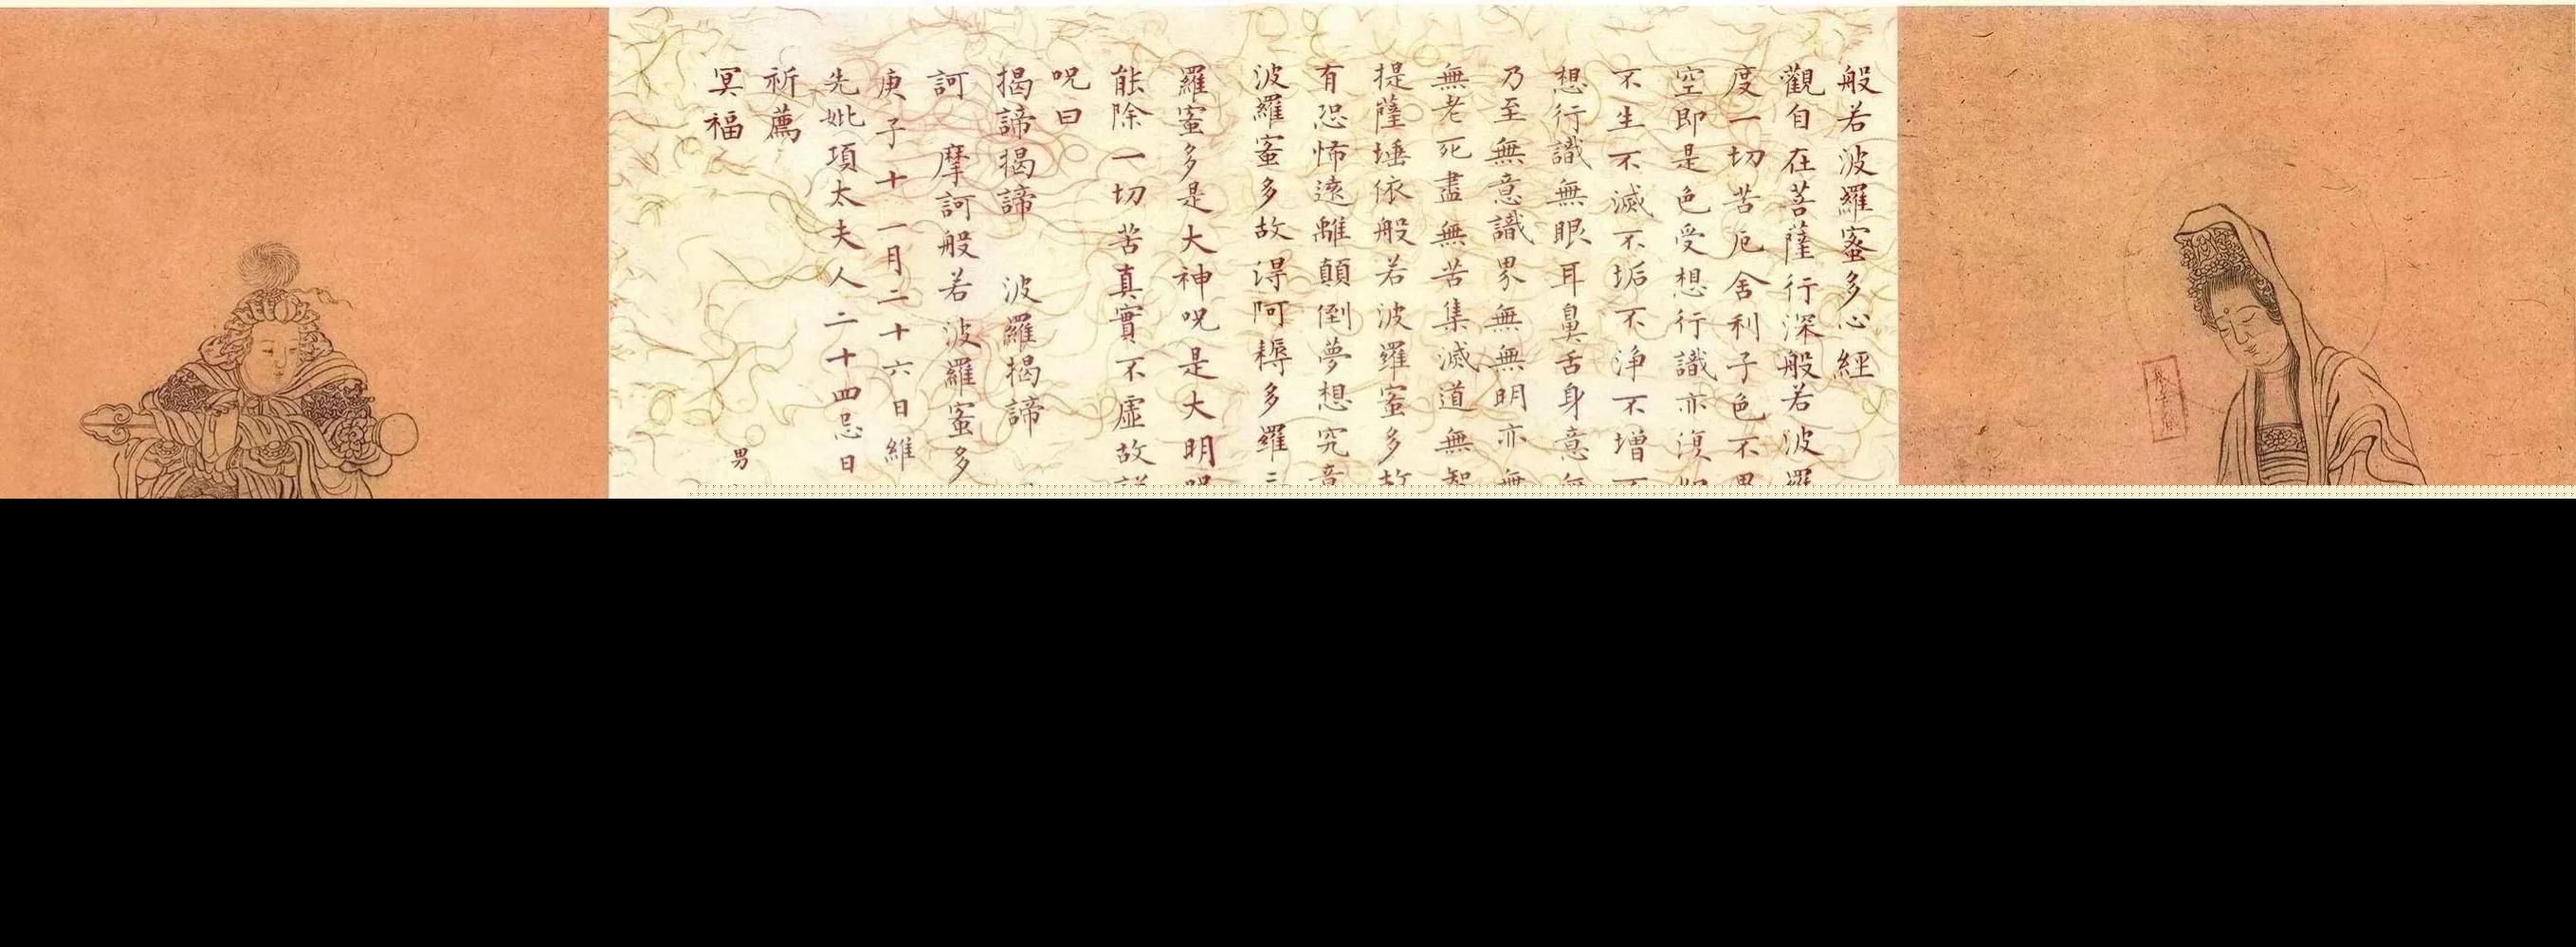 般若波羅蜜多心經
觀自在菩薩行深般若波羅
度一切苦厄舍利子色不異
空即是色受想行識亦須如
不生不滅不垢不淨不增不
想行識無眼耳鼻舌身意無
乃至無意識界無無明亦無
無老死盡無苦集滅道無智
提薩埵依般若波羅蜜多故
有恐怖遠離顛倒夢想究竟
波羅蜜多故得阿耨多羅三
羅蜜多是大神呪是大明呪
能除一切苦真實不虛故說
呪曰
揭諦揭諦 波羅揭諦
訶 摩訶般若波羅蜜多
庚子十一月二十六日維
先妣項太夫人二十四忌日
祈薦
冥福
男